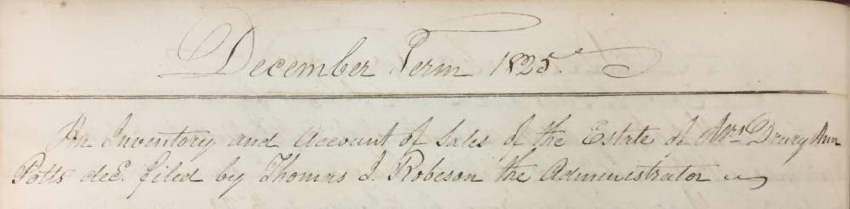 December Term 1825.
An Inventory and Account of Sales of the Estate of Mrs. Drury Ann
Potts decd. filed by Thomas J. Robeson the Administrator